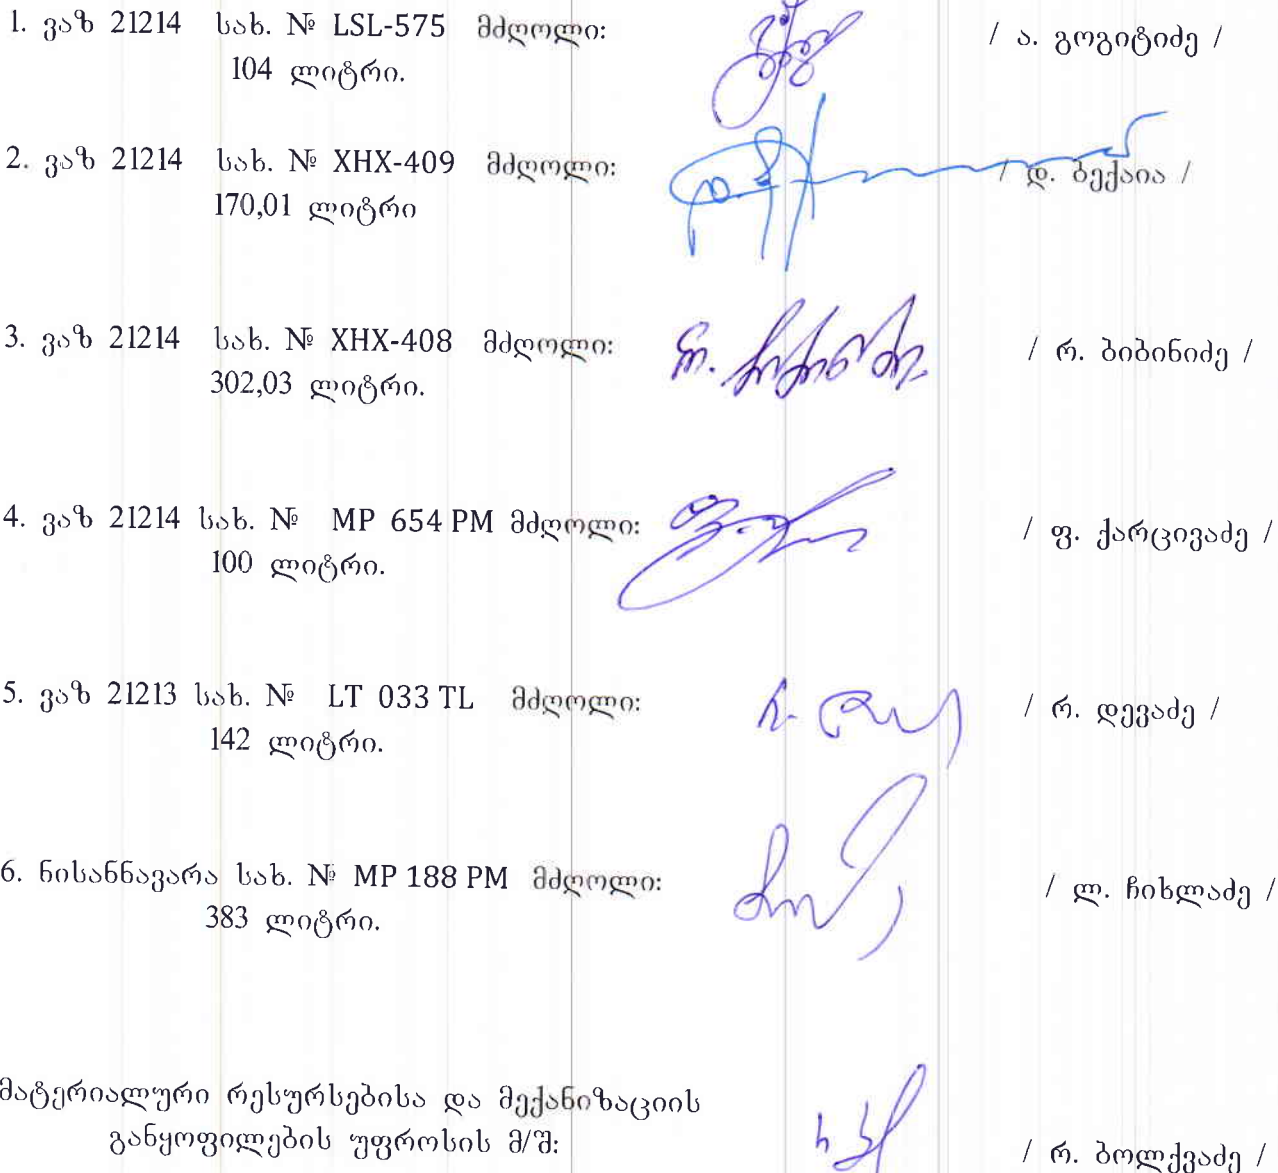 1. ვაზ 21214 სახ. № LSL-575 მძღოლი: / ა. გოგიტიძე /
104 ლიტრი.
2. ვაზ 21214 სახ. № XHX-409 მძღოლი: / დ. ბექაია /
170,01 ლიტრი
3. ვაზ 21214 სახ. № XHX-408 მძღოლი: / რ. ბიბინიძე /
302,03 ლიტრი.
4. ვაზ 21214 სახ. № MP 654 PM მძღოლი: / ფ. ქარცივაძე /
100 ლიტრი.
5. ვაზ 21213 სახ. № LT 033 TL მძღოლი: / რ. დევაძე /
142 ლიტრი.
6. ნისანნავარა სახ. № MP 188 PM მძღოლი: / ლ. ჩიხლაძე /
383 ლიტრი.
მატერიალური რესურსებისა და მექანიზაციის
განყოფილების უფროსის მ/შ: / რ. ბოლქვაძე /